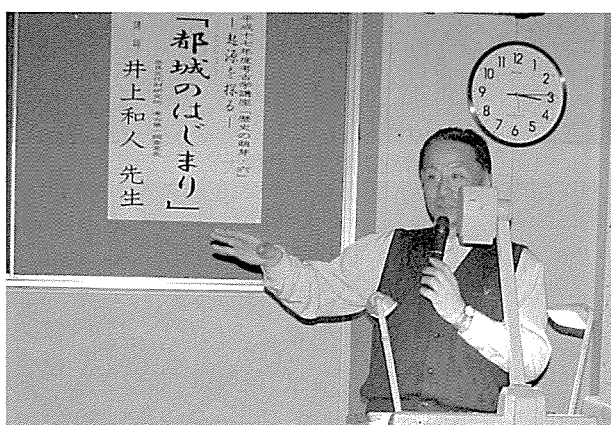 平成十七年度考古学講座 歴史の萌芽(六)
―起源を探る―
「都城のはじまり」
講師
井上和人 先生
12
1
2
3
4
5
6
7
8
9
10
11